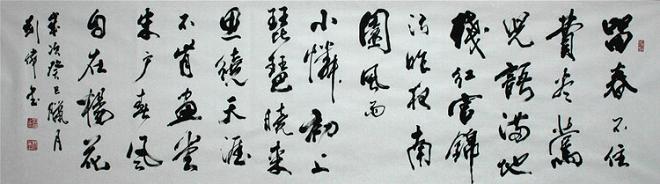 留春不住
費尽鶯
兒語滿地
殘紅宮錦
污昨夜南
園風雨
小憐初上
琵琶曉来
思繞天涯
不肯畫堂
朱户春風
自在楊花
歲次癸巳臘月
劉偉書